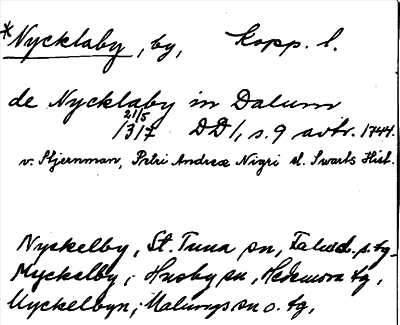 *Nycklaby, by, Kopp. l.
de Nycklaby in Dalum
21/5
1317 DD 1, s. 9 avtr. 1744.
v. Stjernman, Petri Andreæ Nigri el. Swarts Hist.
Nyckelby, St. Tuna sn, Falued. s. tg.
Nyckelby, Husby sn, Hedemora tg,
Nyckelbyn, Malungs sn o. tg,